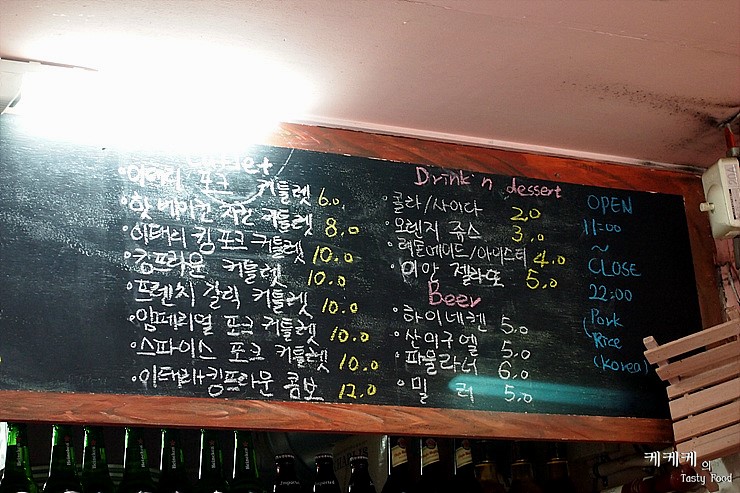 이태리 포크 커틀렛 6.0
핫 베이컨 치즈 커틀렛 8.0
이태리 킹 포크 커틀렛 10.0
킹프라운 커틀렛 10.0
프렌치 갈릭 커틀렛 10.0
임페리얼 포크 커틀렛 10.0
스파이스 포크 커틀렛 10.0
이태리+킹프라운 콤보 12.0
Drink n dessert
콜라/사이다 2.0
오렌지 쥬스 3.0
레몬에이드/아이스티 4.0
이암 젤라또 5.0
Beer
하이네켄 5.0
산미구엘 5.0
파울라너 6.0
밀러 5.0
OPEN
11:00
~
CLOSE
22:00
(Pork
Rice
(Korea)
케케케의
Tasty Food